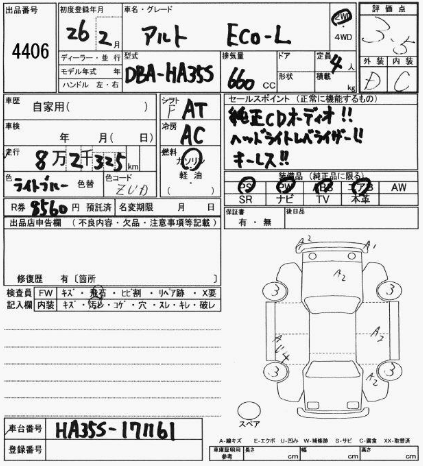 出品番号
4406
初度登録年月
26年2月
ディーラー・並行
モデル年式 年
ハンドル 左・右
車名・グレード
アルト Eco-L
2WD
4WD
型式
DBA-HA35S
排気量
660 CC
ドア
形状
定員
4人
積載
kg
評価点
3.5
外装 内装
D C
車歴
自家用( )
車検
年 月( )
走行
8万2千325km
色
ライトブルー
色替
色コード
ZUD
シフト
F AT
冷房
AC
燃料
ガソリン
軽油
セールスポイント(正常に機能するもの)
純正CDオーディオ!!
ヘッドライトレベライザー!!
キーレス!!
装備品(純正品に限る)
PS PW ABS エアB AW
SR ナビ TV 本革
R券 8560円 預託済
名変期限 月 日
保証書
有・無
後日品
出品店申告欄(不良内容・欠品・注意事項等記載)
修復歴 有〔箇所
検査員
記入欄
FW キズ・飛石・ヒビ割・リペア跡・X要
内装 キズ・汚れ・コゲ・穴・スレ・キレ・破レ
A2 A1
A2
3 3
A2
A2
U4
3 3
A2
スペア
車台番号 HA35S-171161
登録番号
A-線キズ E-エクボ U-凹み W-補修跡 S-サビ C-腐食 XX-取替済
車庫証明用
参考
長さ cm
幅 cm
高さ cm